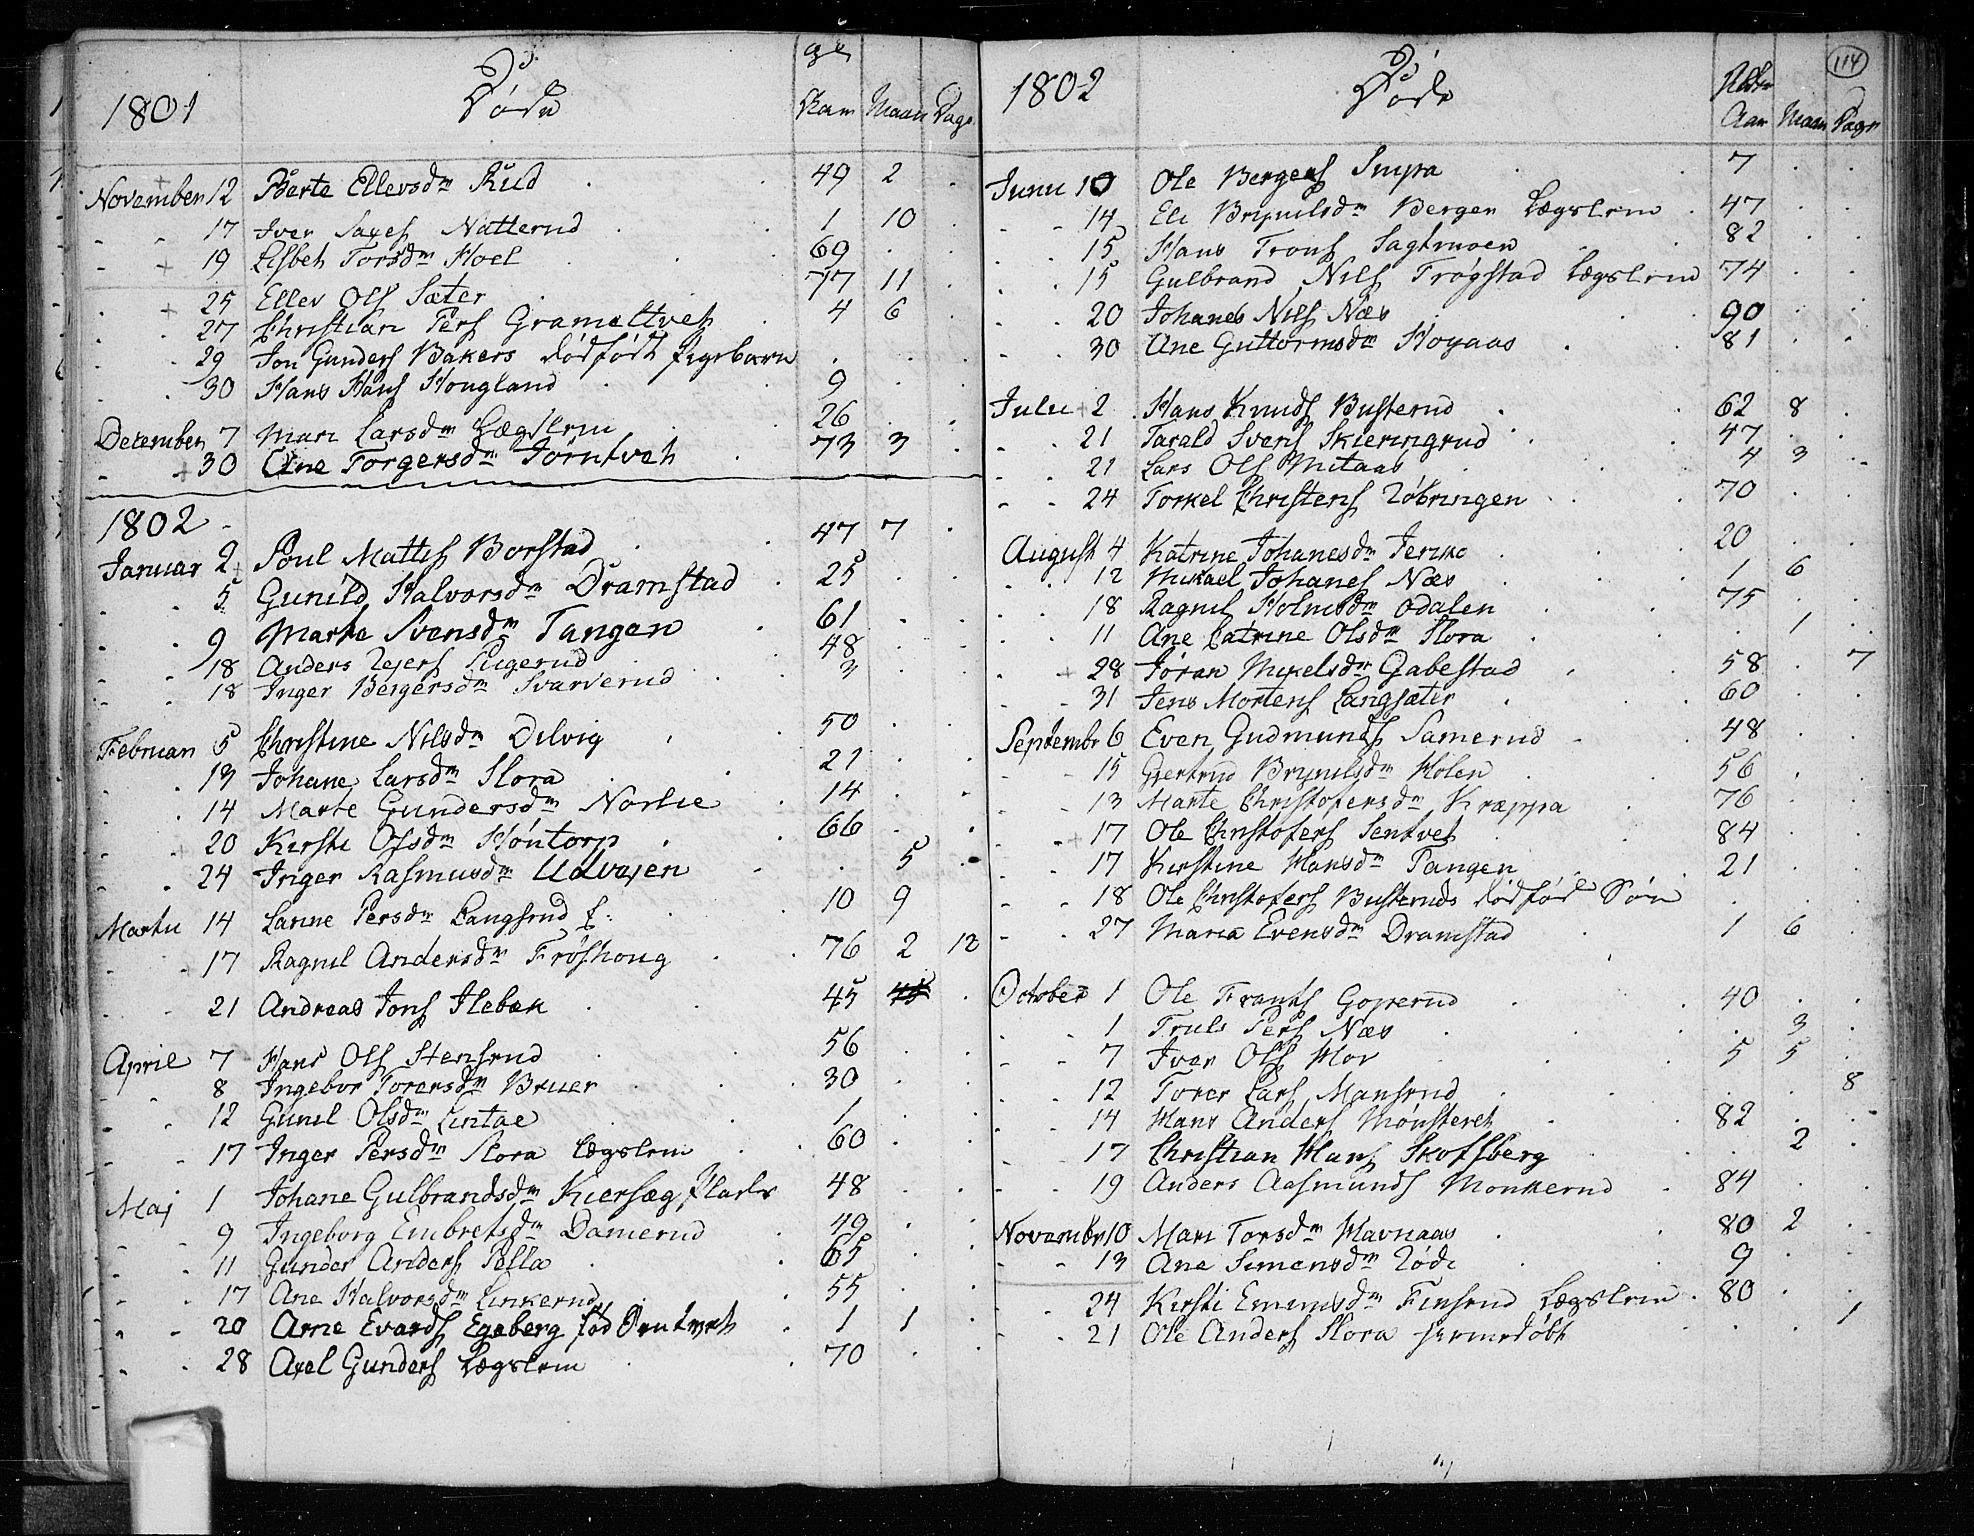 1801 Døde Aar Maan Dage
November 12 Berte Ellevsdr Rud 49 2
17 Iver Natterud 1 10
19 Lisbeth Torsdr Hoel 69
25 Ellev Ols Sæter 77 11
27 Christian Pers Grameltveth 4 6
29 Jon Gunders Bakers dødfødt Pigebarn
30 Hans Hans Hougland 9
December 7 Mari Larsdr Lægslem 26
30 Ane Torgersdr Jørntveth 73 3
1802
Januar 2 Poul Mattis Borstad 47 7
5 Gunild Halvorsdr Dramstad 25
9 Marte Svensdr Tangen 61
18 Anders 48
18 Inger Bergersdr Svarverud 3
Februari 5 Christine Nilsdr Dilvig 50
13 Johane Larsdr Flora 21
14 Marte Gundersdr Norlie 14
20 Kirsti Olsdr Høntorp 66
24 Inger Rasmusdr Udvejen 5
Martii 14 Persdr Langsrud f: 10 9
17 Ragnil Andersdr Frøshoug 76 2 12
21 Andreas Jons Ilebek 45
April 7 Hans Ols Stensrud 56
8 Ingebor Torersdr Bruer 30
12 Gunil Olsdr Lintae 1
17 Inger Persdr Flora Lægslem 60
Maj 1 Johane Gulbrandsdr Kiersæg 48
9 Ingeborg Embretsdr Damerud 49
11 Gunder Anders Pella 65
17 Ane Halvorsdr Linkerud 55
20 Arne Evards Egeberg fød 1 1
28 Axel Gunders Lægslem 70
114
1802 Døde Alder
Aar Maan Dage
Junii 10 Ole Bergers 7
14 Eli Brynilsdr Bergen Lægslem 47
15 Hans Trons Sagtmoen 82
15 Gulbrand Nils Trøgstad Lægslem 74
20 Johanes Nils Næs 90
30 Ane Guttormsdr Hoyaas 81
Julii 2 Hans Knuds Busterud 62 8
21 Tarald Svens Skieringrud 47
21 Lars Ols Mitaas 4 3
24 Torkel Christens 70
August 4 Katrine Johanesdr 20
12 Mikael Johanes Næs 1 6
18 Ragnil Holmsdr Odalen 75
11 Ane Catrine Olsdr Flora 1
28 Jøran Mikelsdr Gabestad 58 7
31 Jens Mortens Langsæter 60
Septembr 6 Even Gudmunds Samerud 48
15 Gjertrud Brynilsdr Holen 56
13 Marte Christofersdr Kræppa 76
17 Ole Christofers Sentvet 84
17 Kirstine Hansdr Tangen 21
18 Ole Christofers Busteruds dødfød Søn
27 Maria Evensdr Dramstad 1 6
October 1 Ole Frants Goperud 40
1 Truls Pers Næs 3
7 Iver Ols Mor 5 5
12 Torer Lars Mansrud 8
14 Hans Anders Mønsteret 82
17 Christian Hans Skofsberg 2
19 Anders Aasmunds Monkerud 84
Novembr 10 Mari Torsdr Havnaas 80 2
13 Ane Simensdr 9
24 Kirsti Finsrud Lægslem 80
21 Ole Anders Flora hiemedøbt 1